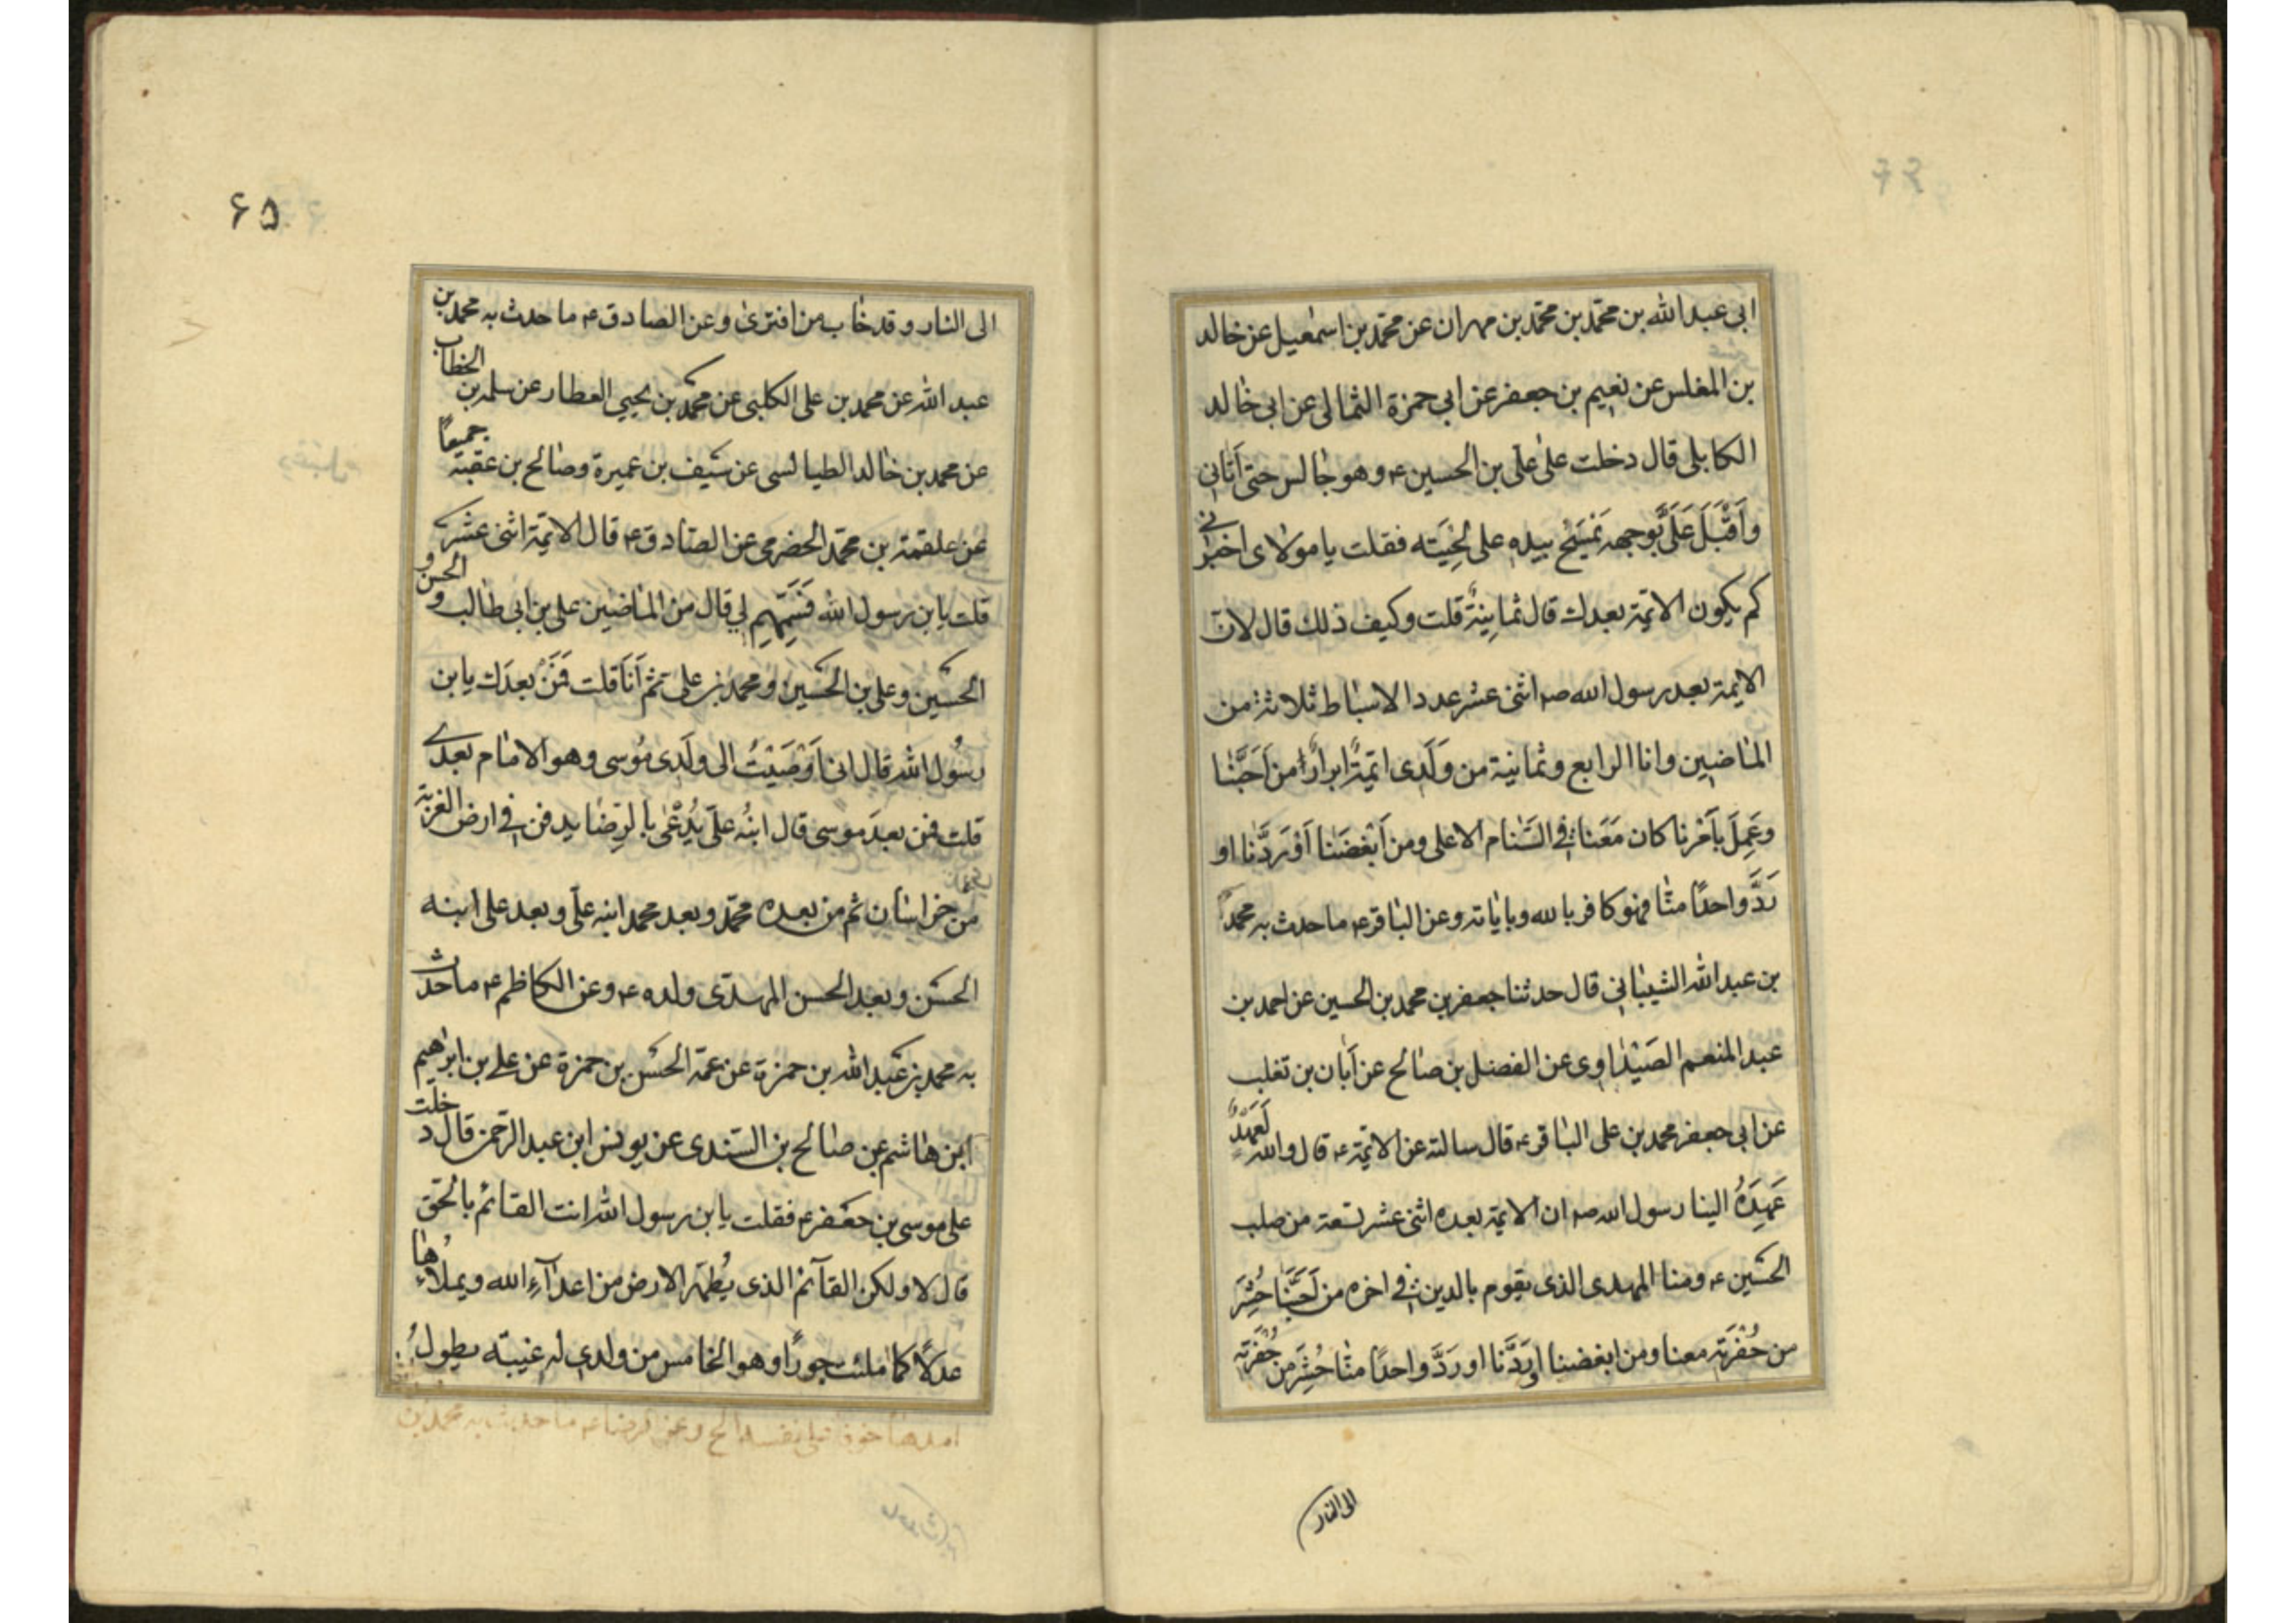 ابی عبدالله بن محمّد بن محمّد بن مهران عن محمّد بن اسمٰعیل عن خالد
بن المغلس عن نعیم بن جعفر عن ابی حمزة الثمالی عن ابی خالد
الکابلی قال دخلت علی علی بن الحسین ع وهو جالس حتی أتانی
وأقبل علیّ بوجهه یمسح بیده علی لحیته فقلت یا مولای اخبرنی
کم یکون الائمة بعدك قال ثمانیة قلت وکیف ذلك قال لان
الائمة بعد رسول الله صم اثنی عشر عدد الاسباط ثلاثة من
الماضین وانا الرابع وثمانیة من ولدی ائمّة ابرارًا من احبّنا
وعمل بأمرنا کان معنا فی السنام الاعلی ومن ابغضنا او ردّنا او
ردّ واحدًا منّا فهو کافر بالله وبایاته وعن الباقر ع ما حدث به محمد
بن عبدالله الشیبانی قال حدثنا جعفر بن محمد بن الحسین عن احمد بن
عبد المنعم الصیداوی عن الفضل بن صالح عن أبان بن تغلب
عن ابی جعفر محمد بن علی الباقر ع قال سالته عن الائمّة ع قال والله لعهدٌ
عهده الینا رسول الله صم ان الائمة بعده اثنی عشر تسعة من صلب
الحسین ع ومنا المهدی الذی یقوم بالدین فی اخره من احبّنا حُشِرَ
من حُفرته معنا ومن ابغضنا او ردّنا او ردّ واحدًا منّا حُشِرَ من حُفرته
الی النار
۶۵
الی النار وقد خاب من افتری وعن الصادق ع ما حدث به محمد بن
عبدالله عن محمد بن علی الکلینی عن محمد بن یحیی العطار عن سلمه بن الخطاب
عن محمد بن خالد الطیالسی عن سیف بن عمیرة وصالح بن عقبة جمیعًا
عن علقمة بن محمّد الحضرمی عن الصادق ع قال الائمّة اثنی عشر
قلت یا بن رسول الله فسمّهم لی قال من الماضین علی بن ابی طالب والحسن و
الحسین وعلی بن الحسین ومحمد بن علی ثم أنا قلت فمن بعدك یا بن
رسول الله قال انی اوصیت الی ولدی موسی وهو الامام بعدی
قلت فمن بعد موسی قال ابنُه علیّ یُدعی بالرضا یدفن فی ارض الغربة
من خراسان ثم من بعده محمّد وبعد محمد ابنه علی وبعد علی ابنه
الحسن وبعد الحسن المهدی ولده ع وعن الکاظم ع ما حدث
به محمد بن عبدالله بن حمزة عن عمّه الحسن بن حمزة عن علی بن ابرهیم
ابن هاشم عن صالح بن السندی عن یونس ابن عبد الرحمن قال دخلت
علی موسی بن جعفر ع فقلت یا بن رسول الله انت القائم بالحق
قال لا ولکن القائم الذی یُطهّر الارض من اعدآءِ الله ویملاءُها
عدلًا کما ملئت جورًا وهو الخامس من ولدی له غیبته یطولُ
امدها خوفا علی نفسه الخ وعن الرضا ع ما حدث به محمد بن